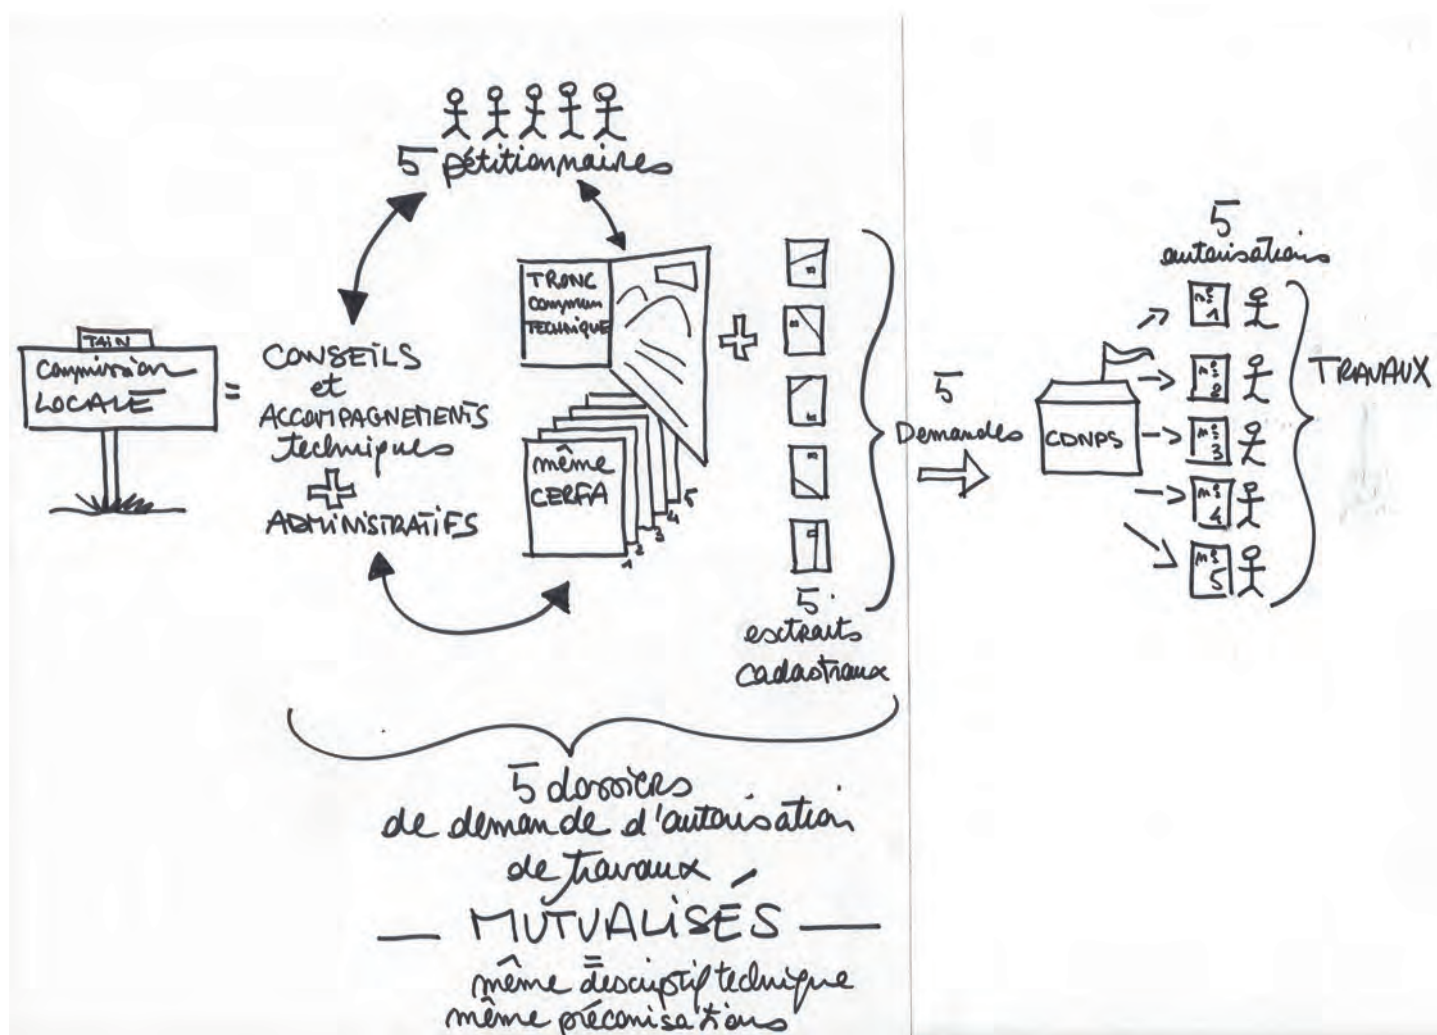 5 pétitionnaires
TAIN
Commission
LOCALE
=
CONSEILS
et
ACCOMPAGNEMENTS
techniques
+
ADMINISTRATIFS
TRONC
Commun
TECHNIQUE
même
CERFA
1 2 3 4 5
+
5
extraits
cadastraux
5
Demandes
CDNPS
5
autorisations
n° 1
n° 2
n° 3
n° 4
n° 5
TRAVAUX
5 dossiers
de demande d'autorisation
de travaux
— MUTUALISÉS —
=
même descriptif technique
même préconisations